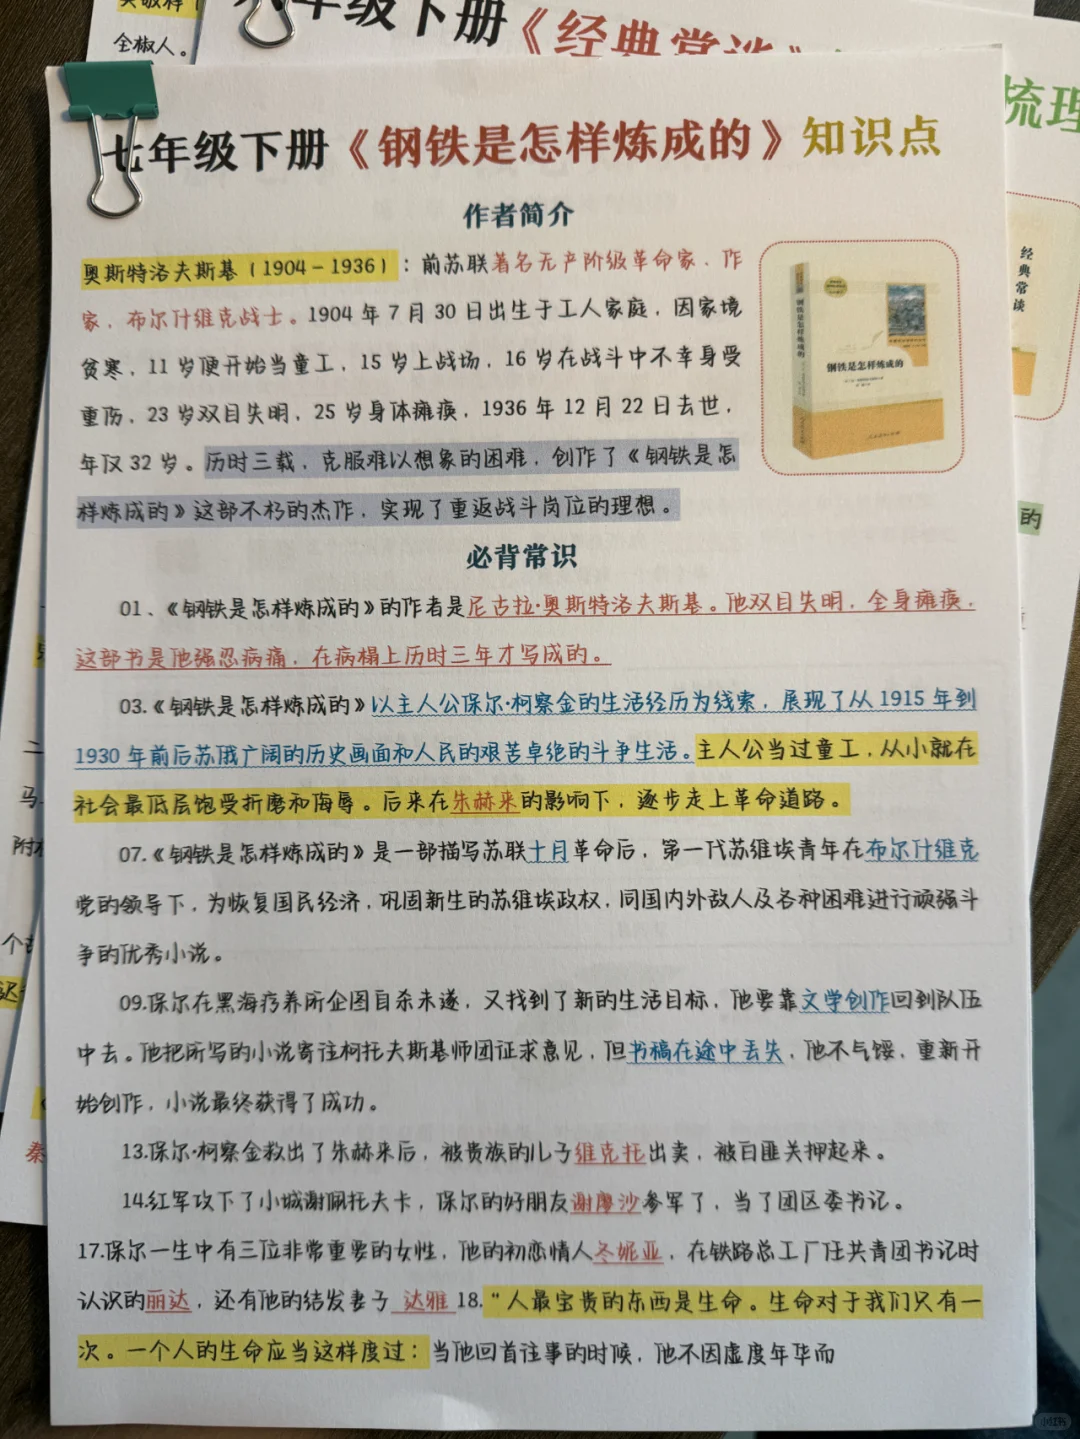 全椒人。
年级下册《经典常谈》
梳理
七年级下册《钢铁是怎样炼成的》知识点
作者简介
奥斯特洛夫斯基（1904－1936）：前苏联著名无产阶级革命家、作
家、布尔什维克战士。1904 年 7 月 30 日出生于工人家庭，因家境
贫寒，11 岁便开始当童工，15 岁上战场，16 岁在战斗中不幸身受
重伤，23 岁双目失明，25 岁身体瘫痪，1936 年 12 月 22 日去世，
年仅 32 岁。历时三载，克服难以想象的困难，创作了《钢铁是怎
样炼成的》这部不朽的杰作，实现了重返战斗岗位的理想。
钢铁是怎样炼成的
钢铁是怎样炼成的
经典常谈
的
必背常识
01、《钢铁是怎样炼成的》的作者是尼古拉·奥斯特洛夫斯基。他双目失明，全身瘫痪，
这部书是他强忍病痛，在病榻上历时三年才写成的。
03.《钢铁是怎样炼成的》以主人公保尔·柯察金的生活经历为线索，展现了从 1915 年到
1930 年前后苏俄广阔的历史画面和人民的艰苦卓绝的斗争生活。主人公当过童工，从小就在
社会最低层饱受折磨和侮辱。后来在朱赫来的影响下，逐步走上革命道路。
07.《钢铁是怎样炼成的》是一部描写苏联十月革命后，第一代苏维埃青年在布尔什维克
党的领导下，为恢复国民经济，巩固新生的苏维埃政权，同国内外敌人及各种困难进行顽强斗
争的优秀小说。
09.保尔在黑海疗养所企图自杀未遂，又找到了新的生活目标，他要靠文学创作回到队伍
中去。他把所写的小说寄往柯托夫斯基师团征求意见，但书稿在途中丢失，他不气馁，重新开
始创作，小说最终获得了成功。
13.保尔·柯察金救出了朱赫来后，被贵族的儿子维克托出卖，被白匪关押起来。
14.红军攻下了小城谢佩托夫卡，保尔的好朋友谢廖沙参军了，当了团区委书记。
17.保尔一生中有三位非常重要的女性，他的初恋情人冬妮亚，在铁路总工厂任共青团书记时
认识的丽达，还有他的结发妻子 达雅 18.“人最宝贵的东西是生命。生命对于我们只有一
次。一个人的生命应当这样度过：当他回首往事的时候，他不因虚度年华而
二
马
附
个
秦
小红书